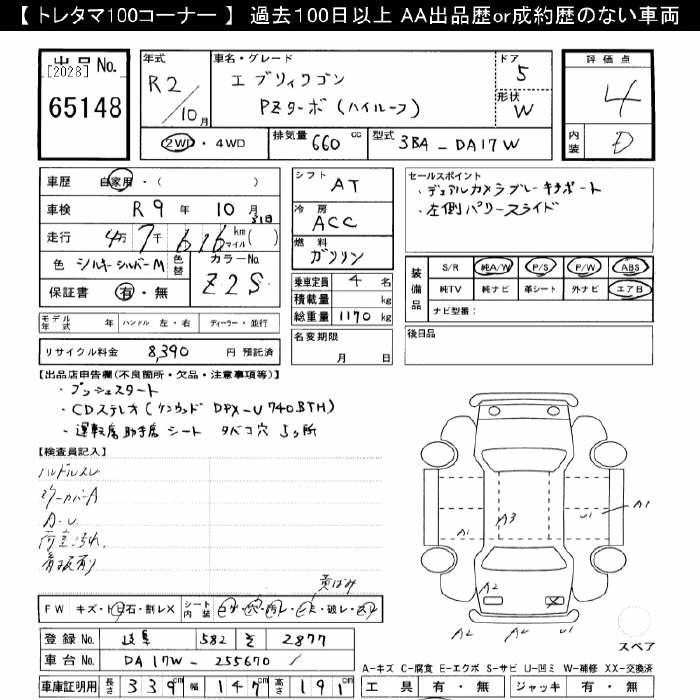 【 トレタマ100コーナー 】 過去100日以上 AA出品歴or成約歴のない車両
出品 No.
[2028]
65148
年式
R2/10月
車名・グレード
エブリィワゴン
PZターボ(ハイルーフ)
ドア
5
形状
W
評価点
4
内装
D
2WD ・ 4WD
排気量 660 cc
型式 3BA - DA17W
車歴 自家用・( )
車検 R9年 10月 31日
走行 4万 7千 616 km マイル ( )
色 シルキーシルバーM
色替
カラーNo.
Z2S
保証書 有・無
シフト AT
冷房 ACC
燃料 ガソリン
乗車定員 4 名
積載量 kg
総重量 1170 kg
名変期限
月 日
セールスポイント
・デュアルカメラブレーキサポート
・左側パワースライド
装備品
S/R 純A/W P/S P/W ABS
純TV 純ナビ 革シート 外ナビ エアB
ナビ型番:
モデル年式 年 ハンドル 左・右 ディーラー・並行
後日品
リサイクル料金 8,390 円 預託済
【出品店申告欄(不良箇所・欠品・注意事項等)】
・プッシュスタート
・CDステレオ(ケンウッド DPX-U740BTH)
・運転席助手席シート タバコ穴 5ヶ所
【検査員記入】
ハンドルスレ
A.U
黄ばみ
A1 A3 U1 A1
A2 A2 A2 U1 X
FW キズ・ト・石・割レX
シート内装
登録 No. 岐阜 582 そ 2877
車台 No. DA17W - 255670
スペア
車庫証明用 長さ 339cm 幅 147cm 高さ 191cm
A-キズ C-腐食 E-エクボ S-サビ U-凹ミ W-補修 XX-交換済
工具 有・無 ジャッキ 有・無